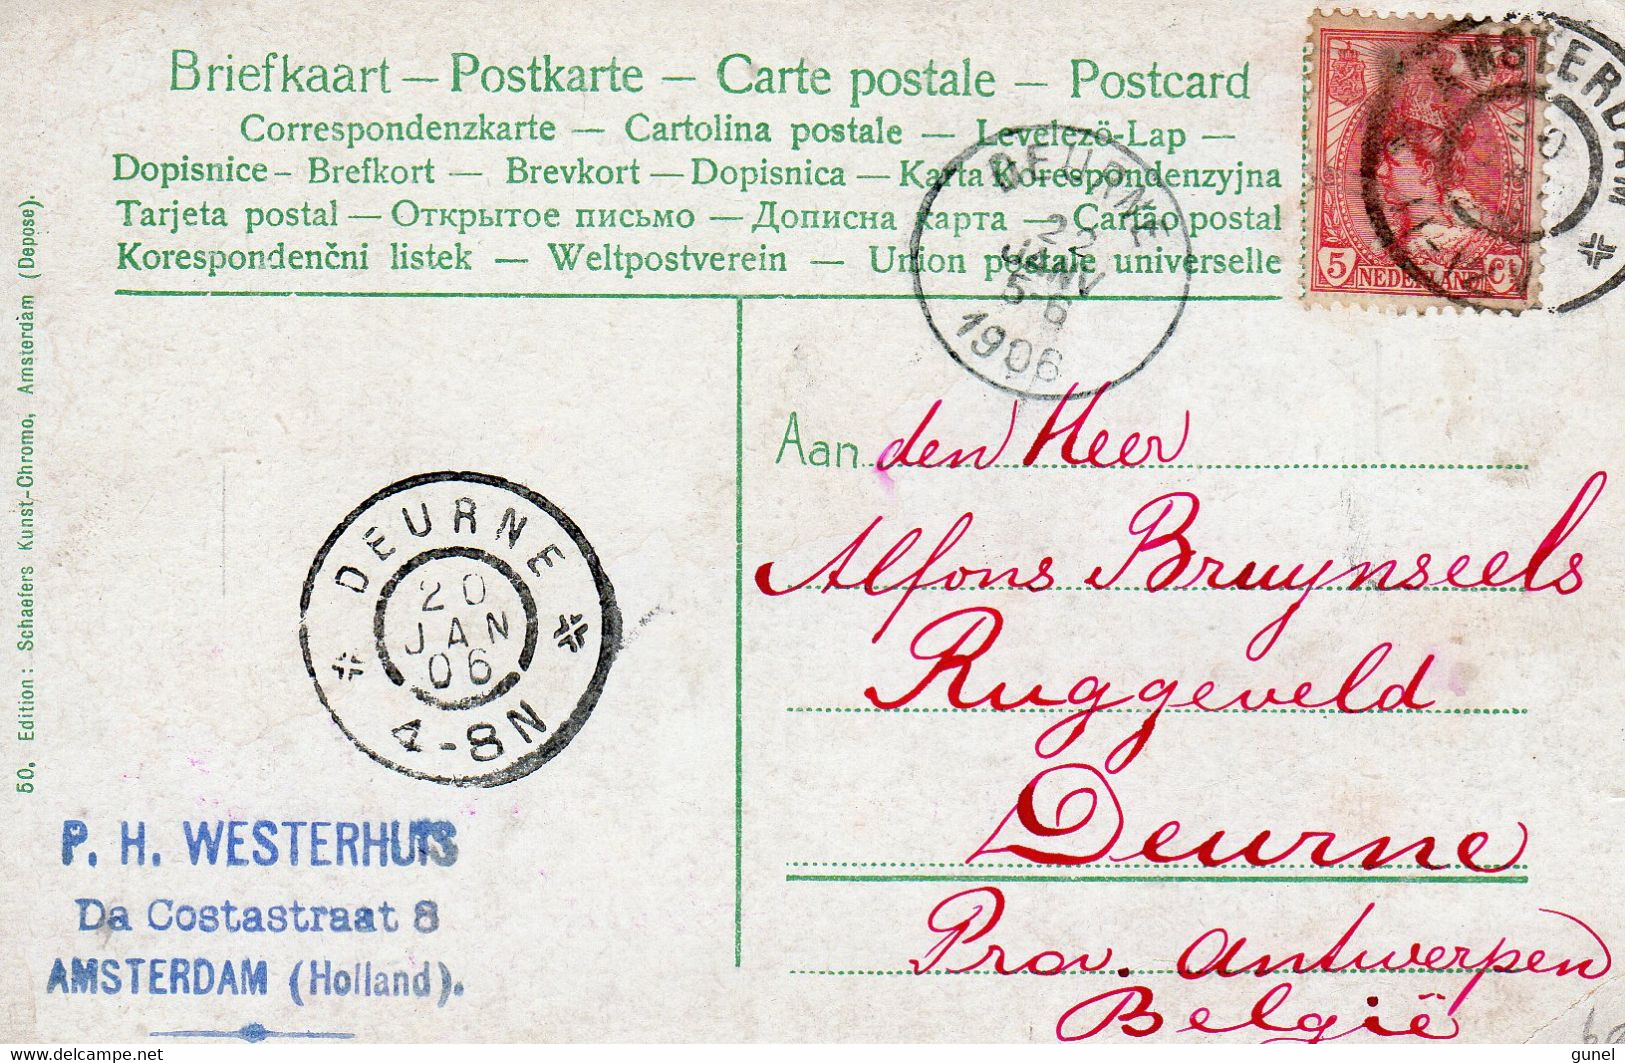 Briefkaart — Postkarte — Carte postale — Postcard
Correspondenzkarte — Cartolina postale — Levelezö-Lap —
Dopisnice - Brefkort — Brevkort — Dopisnica — Karta Korespondenzyjna
Tarjeta postal — Открытое письмо — Дописна карта — Cartão postal
Korespondenčni listek — Weltpostverein — Union postale universelle
AMSTERDAM
5 NEDERLAND Ct
DEURNE
28
JANV
5-6
1906
50. Edition: Schaefers Kunst-Chromo, Amsterdam (Deposé).
DEURNE
20
JAN
06
4-8N
P. H. WESTERHUIS
Da Costastraat 8
AMSTERDAM (Holland).
Aan den Heer
Alfons Bruynseels
Ruggeveld
Deurne
Prov. Antwerpen
België
delcampe.net
gunel